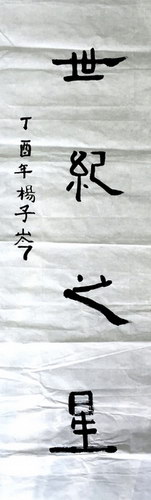 世紀之星
丁酉年楊子岑